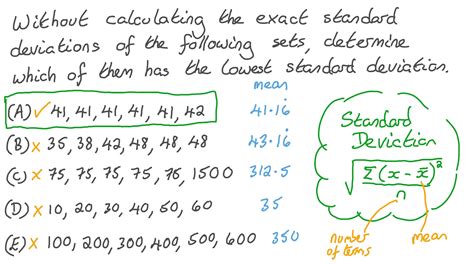 Without calculating the exact standard
deviations of the following sets, determine
which of them has the lowest standard deviation.
mean
(A) ✓ 41, 41, 41, 41, 41, 42 41.16̇
(B) × 35, 38, 42, 48, 48, 48 43.16̇
(C) × 75, 75, 75, 75, 76, 1500 312.5
(D) × 10, 20, 30, 40, 50, 60 35
(E) × 100, 200, 300, 400, 500, 600 350
Standard
Deviation
√(Σ(x - x̄)²/n)
number
of terms
mean